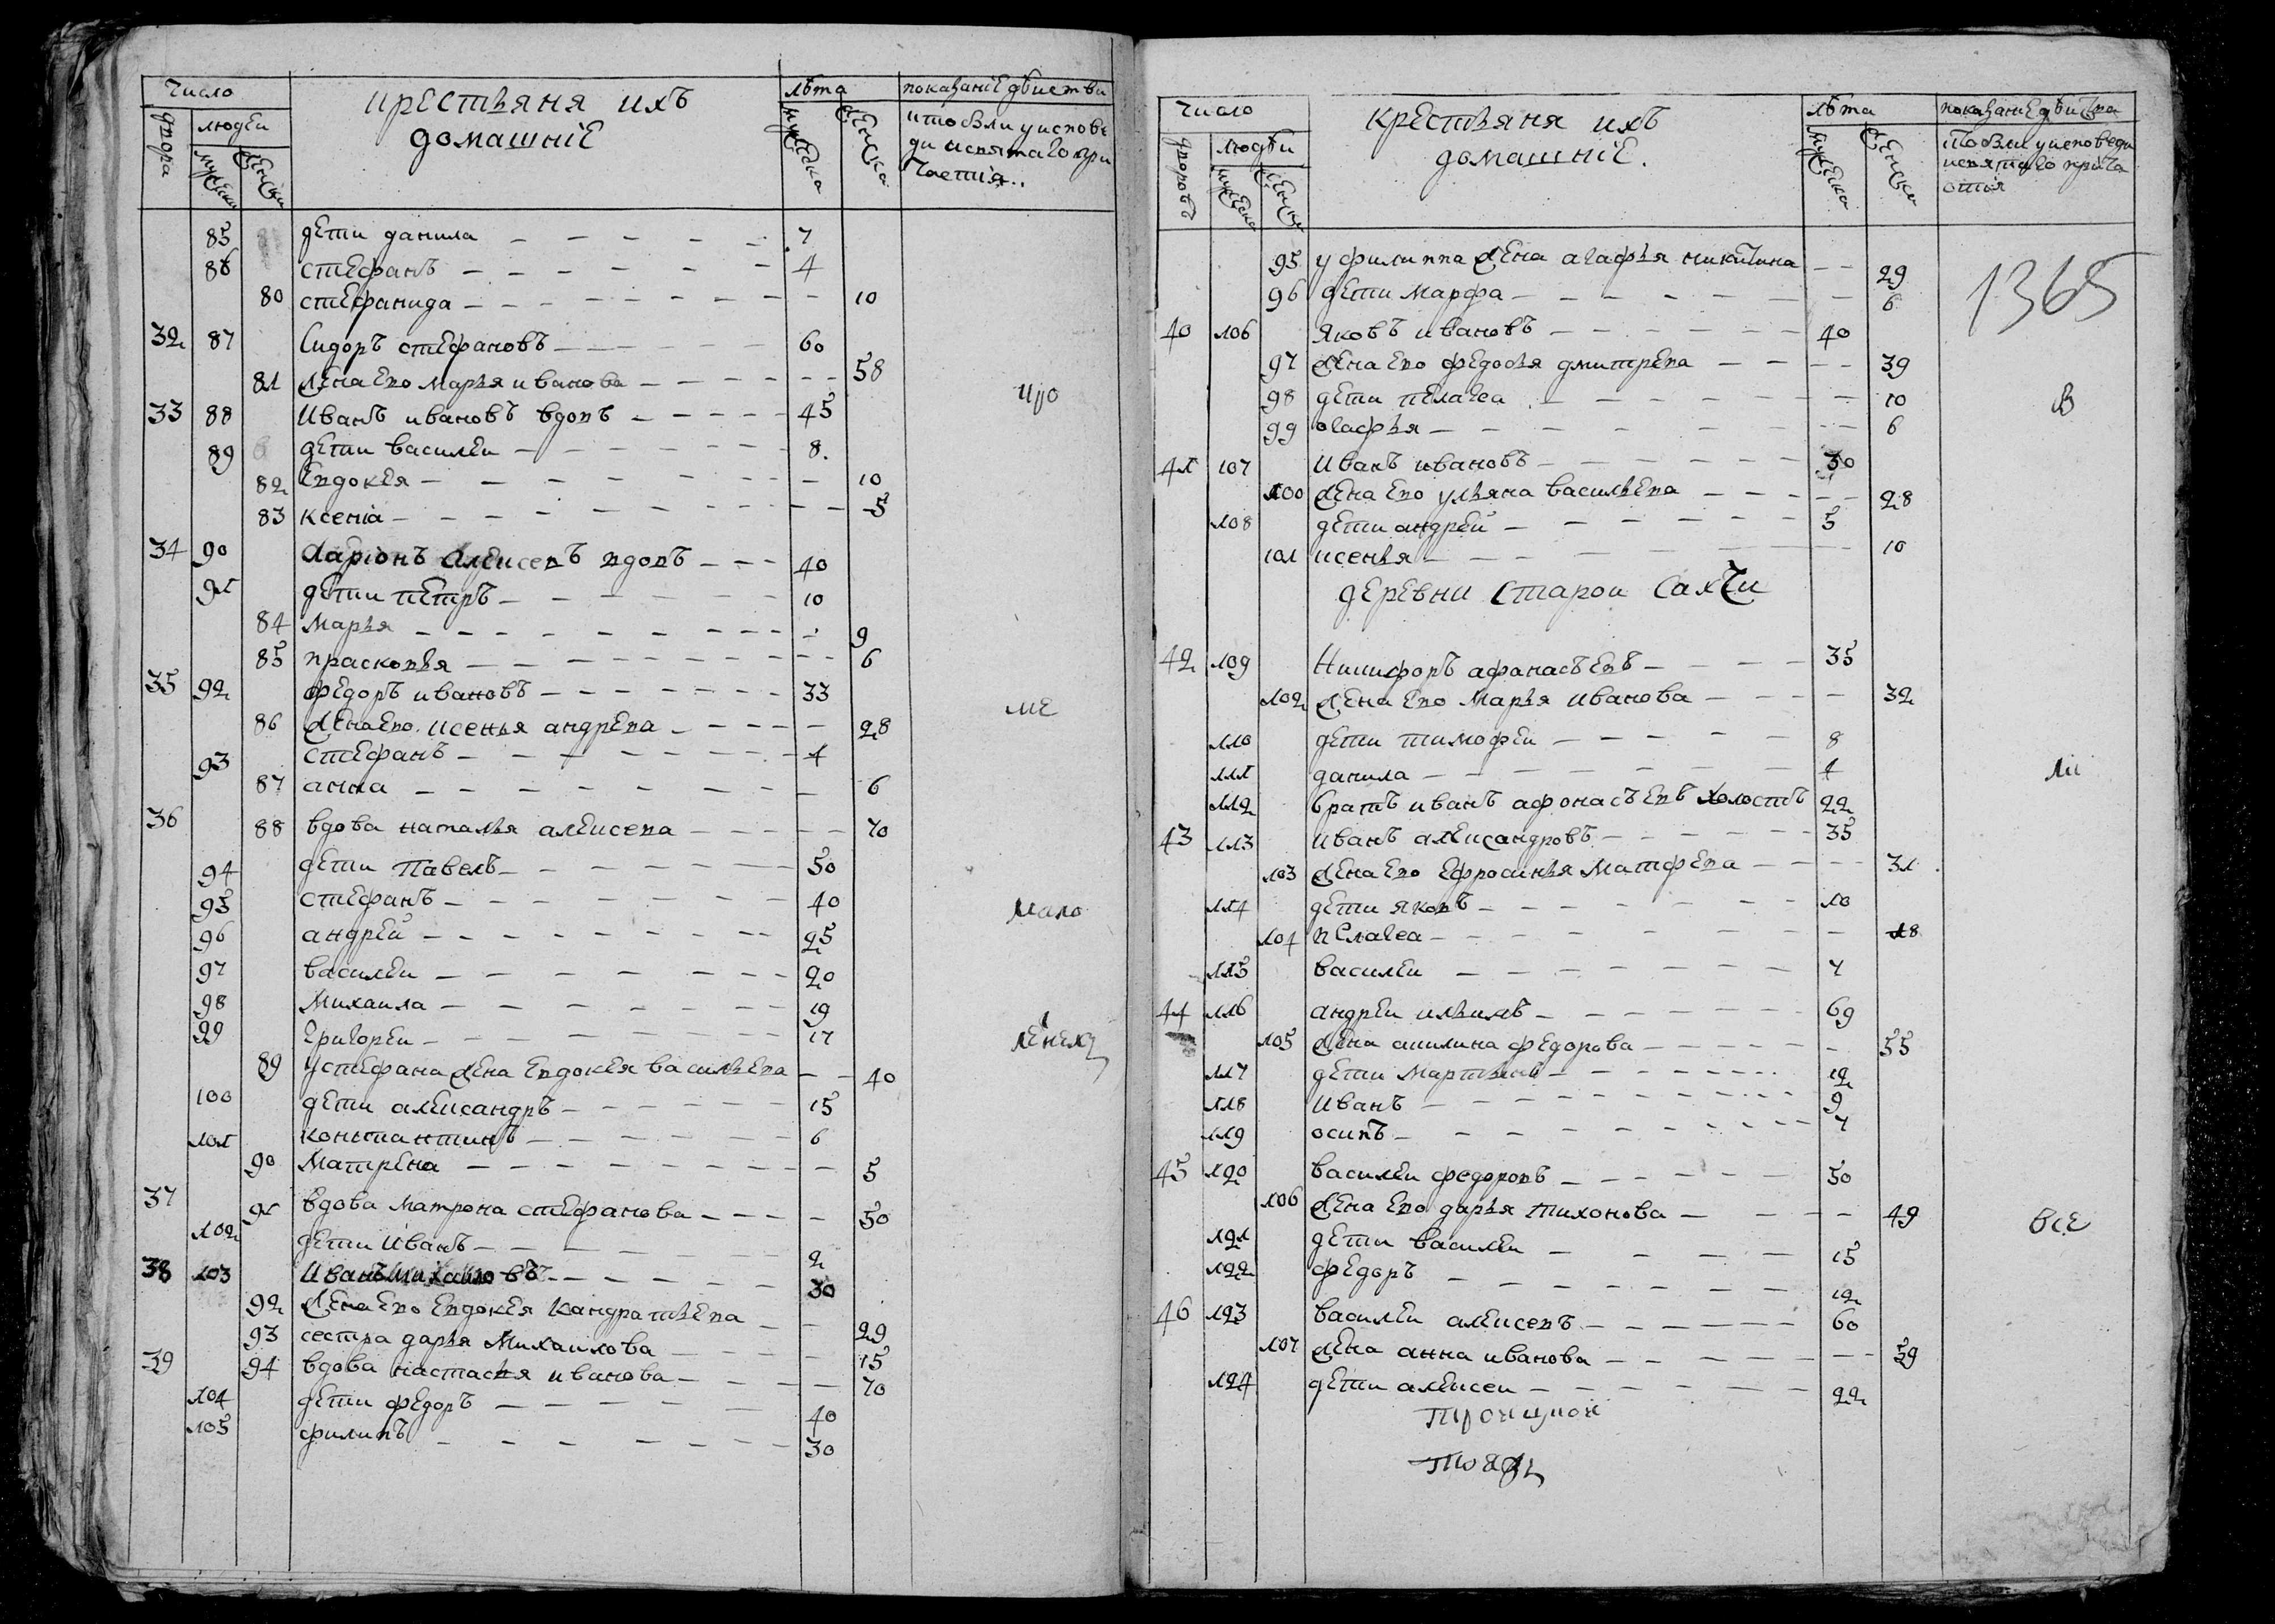 число
крестьяня ихъ
домашніе
лѣта
показаніе действи
двора
людеи
мужеска
женска
мужеска
женска
кто были у испове
ди и святаго при
частія
85 дети данила 7
86 стефанъ 4
80 стефанида 10
32 87 Сидоръ стефановъ 60
81 жена ево марья иванова 58
33 88 Иванъ ивановъ вдовъ 45
89 дети василеи 8
82 Евдокея 10
83 ксеніа 5
34 90 Ларіонъ алексеевъ вдовъ 40
91 дети петръ 10
84 марья 9
85 прасковья 6
35 92 федоръ ивановъ 33
86 жена ево ксенья андрева 28
93 стефанъ 4
87 анна 6
36 88 вдова наталья алексева 70
94 дети павелъ 50
95 стефанъ 40
96 андрей 25
97 василеи 20
98 Михаила 19
99 Григореи 17
89 у стефана жена Евдокея васильева 40
100 дети александръ 15
101 констант­инъ 6
90 Матрена 5
37 91 вдова матрона стефанова 50
102 дети Иванъ 2
38 103 Иванъ Михаиловъ 30
92 жена ево Евдокея кандратьева 29
93 сестра дарья Михаилова 15
39 94 вдова настасья иванова 70
104 дети федоръ 40
105 филипъ 30
ме
мало
число
крестьяня ихъ
домашніе.
лѣта
дворовъ
людеи
мужеска
женска
мужеска
женска
95 у филиппа жена агафья никитина 29
96 дети Марфа 6
1365
40 106 Яковъ ивановъ 40
97 жена ево федосья дмитрева 39
98 дети пелагеа 10
в
99 агафья 6
41 107 Иванъ ивановъ 30
100 жена ево ульяна васильева 28
108 дети андрей 5
101 ксенья 10
деревни Старои Сахчи
42 109 Никифоръ афанасъевъ 35
102 жена ево Марья иванова 32
110 дети тимофеи 8
111 данила 4
112 братъ иванъ афонасъевъ холостъ 22
43 113 иванъ александровъ 35
103 жена ево Ефросинья Матфева 31
114 дети яковъ 10
104 пелагеа 18
115 василеи 7
44 116 андреи ильинъ 69
105 жена акилина федорова 55
117 дети Мартынъ 12
118 Иванъ 9
119 осипъ 7
45 120 василеи федоровъ 50
106 жена ево дарья тихонова 49
все
121 дети василеи 15
122 федоръ 12
46 123 василеи алексевъ 60
107 жена анна иванова 59
124 дети алексеи 22
троицкои